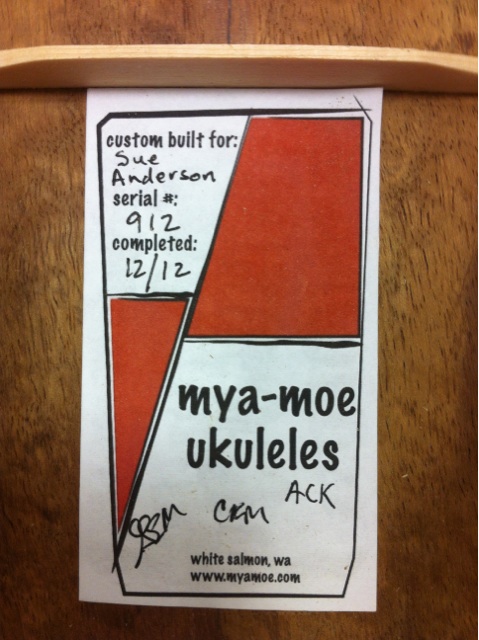 custom built for:
Sue
Anderson
serial #:
912
completed:
12/12
mya-moe
ukuleles
ACK
CKM
white salmon, wa
www.myamoe.com